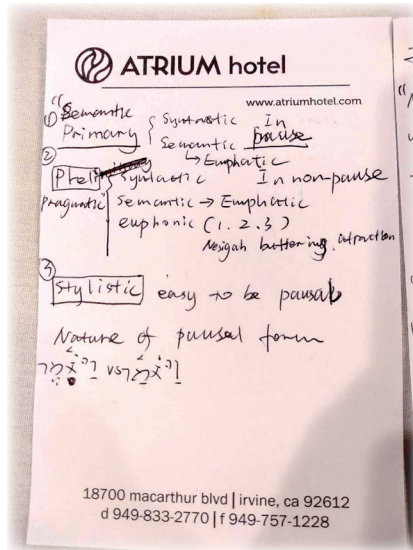 ATRIUM hotel
www.atriumhotel.com
① "Semantic
Primary { Syntactic In
Semantic pause
↳ Emphatic
②
Syntactic In non-pause
Pragmatic Semantic → Emphatic
euphonic (1. 2. 3)
Nesigah buffering, attraction
③
Stylistic easy to be pausal
Nature of pausal form
vs
18700 macarthur blvd | irvine, ca 92612
d 949-833-2770 | f 949-757-1228